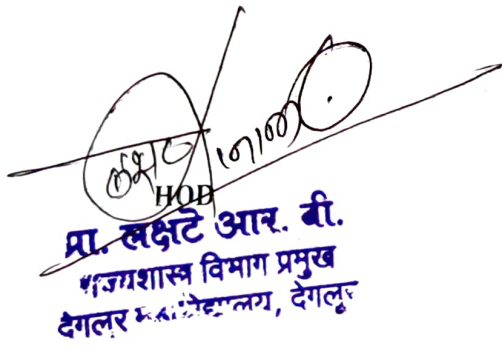 HOD
प्रा. लक्षटे आर. बी.
राज्यशास्त्र विभाग प्रमुख
देगलूर महाविद्यालय, देगलूर